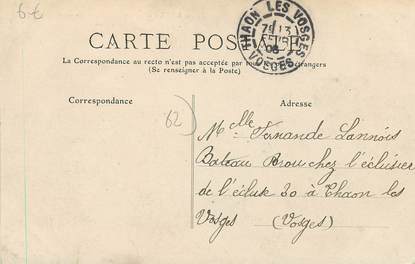 6€
CARTE POSTALE
La Correspondance au recto n'est pas acceptée par étrangers
(Se renseigner à la Poste)
THAON LES VOSGES
13
06
VOSGES
Correspondance
Adresse
62
Melle Fernande Lannois
Bateau chez l'éclusier
de l'écluse 30 à Thaon les
Vosges (Vosges)